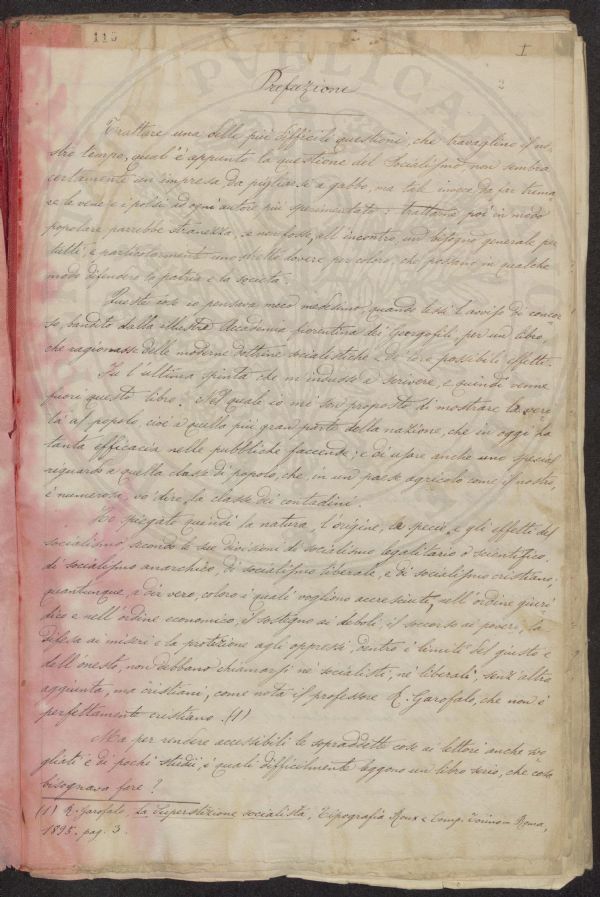 116
I
2
Prefazione
Trattare una delle più difficili questioni, che travaglino il no-
stro tempo, qual'è appunto la questione del Socialismo non sembra
certamente un'impresa da pigliarsi a gabbo, ma tale invece da far trema-
re le vene e i polsi ad ogni autore più sperimentato: trattarne poi in modo
popolare parrebbe stranezza, se non fosse, all'incontro, un bisogno generale per
tutti, e particolarmente uno stretto dovere per coloro, che possano in qualche
modo difendere la patria e la società.
Queste cose io pensava meco medesimo, quando lessi l'avviso di concor-
so, bandito dalla illustre Accademia fiorentina dei Georgofili, per un libro,
che ragionasse delle moderne dottrine socialistiche e de' loro possibili effetti.
Fu l'ultima spinta che m'indusse a scrivere, e quindi venne
fuori questo libro. Nel quale io mi son proposto di mostrare la veri-
tà al popolo, cioè a quella più gran parte della nazione, che in oggi ha
tanta efficacia nelle pubbliche faccende; e di usare anche uno special
reguardo a quella classe di popolo, che, in un paese agricolo come il nostro,
è numerosa, vo' dire, la classe dei contadini.
Ho spiegato quindi la natura, l'origine, le specie, e gli effetti del
socialismo, secondo le sue divisioni di socialismo legalitario o scientifico,
di socialismo anarchico, di socialismo liberale, e di socialismo cristiano;
quantunque, a dir vero, coloro i quali vogliono accresciute, nell'ordine giuri-
dico e nell'ordine economico, il sostegno ai deboli, il soccorso ai poveri, la
difesa ai miseri e la protezione agli oppressi, dentro i limiti del giusto e
dell'onesto, non debbano chiamarsi nè socialisti, nè liberali, senz'altra
aggiunta, ma cristiani, come nota il professore R. Garofalo, che non è
perfettamente cristiano. (1)
Ma per rendere accessibili le sopraddette cose ai lettori anche svo-
gliati e di pochi studii, i quali difficilmente leggono un libro serio, che cosa
bisognava fare?
(1) R. Garofalo, La Superstizione socialista, Tipografia Roux e Comp. Torino-Roma,
1895. pag. 3.